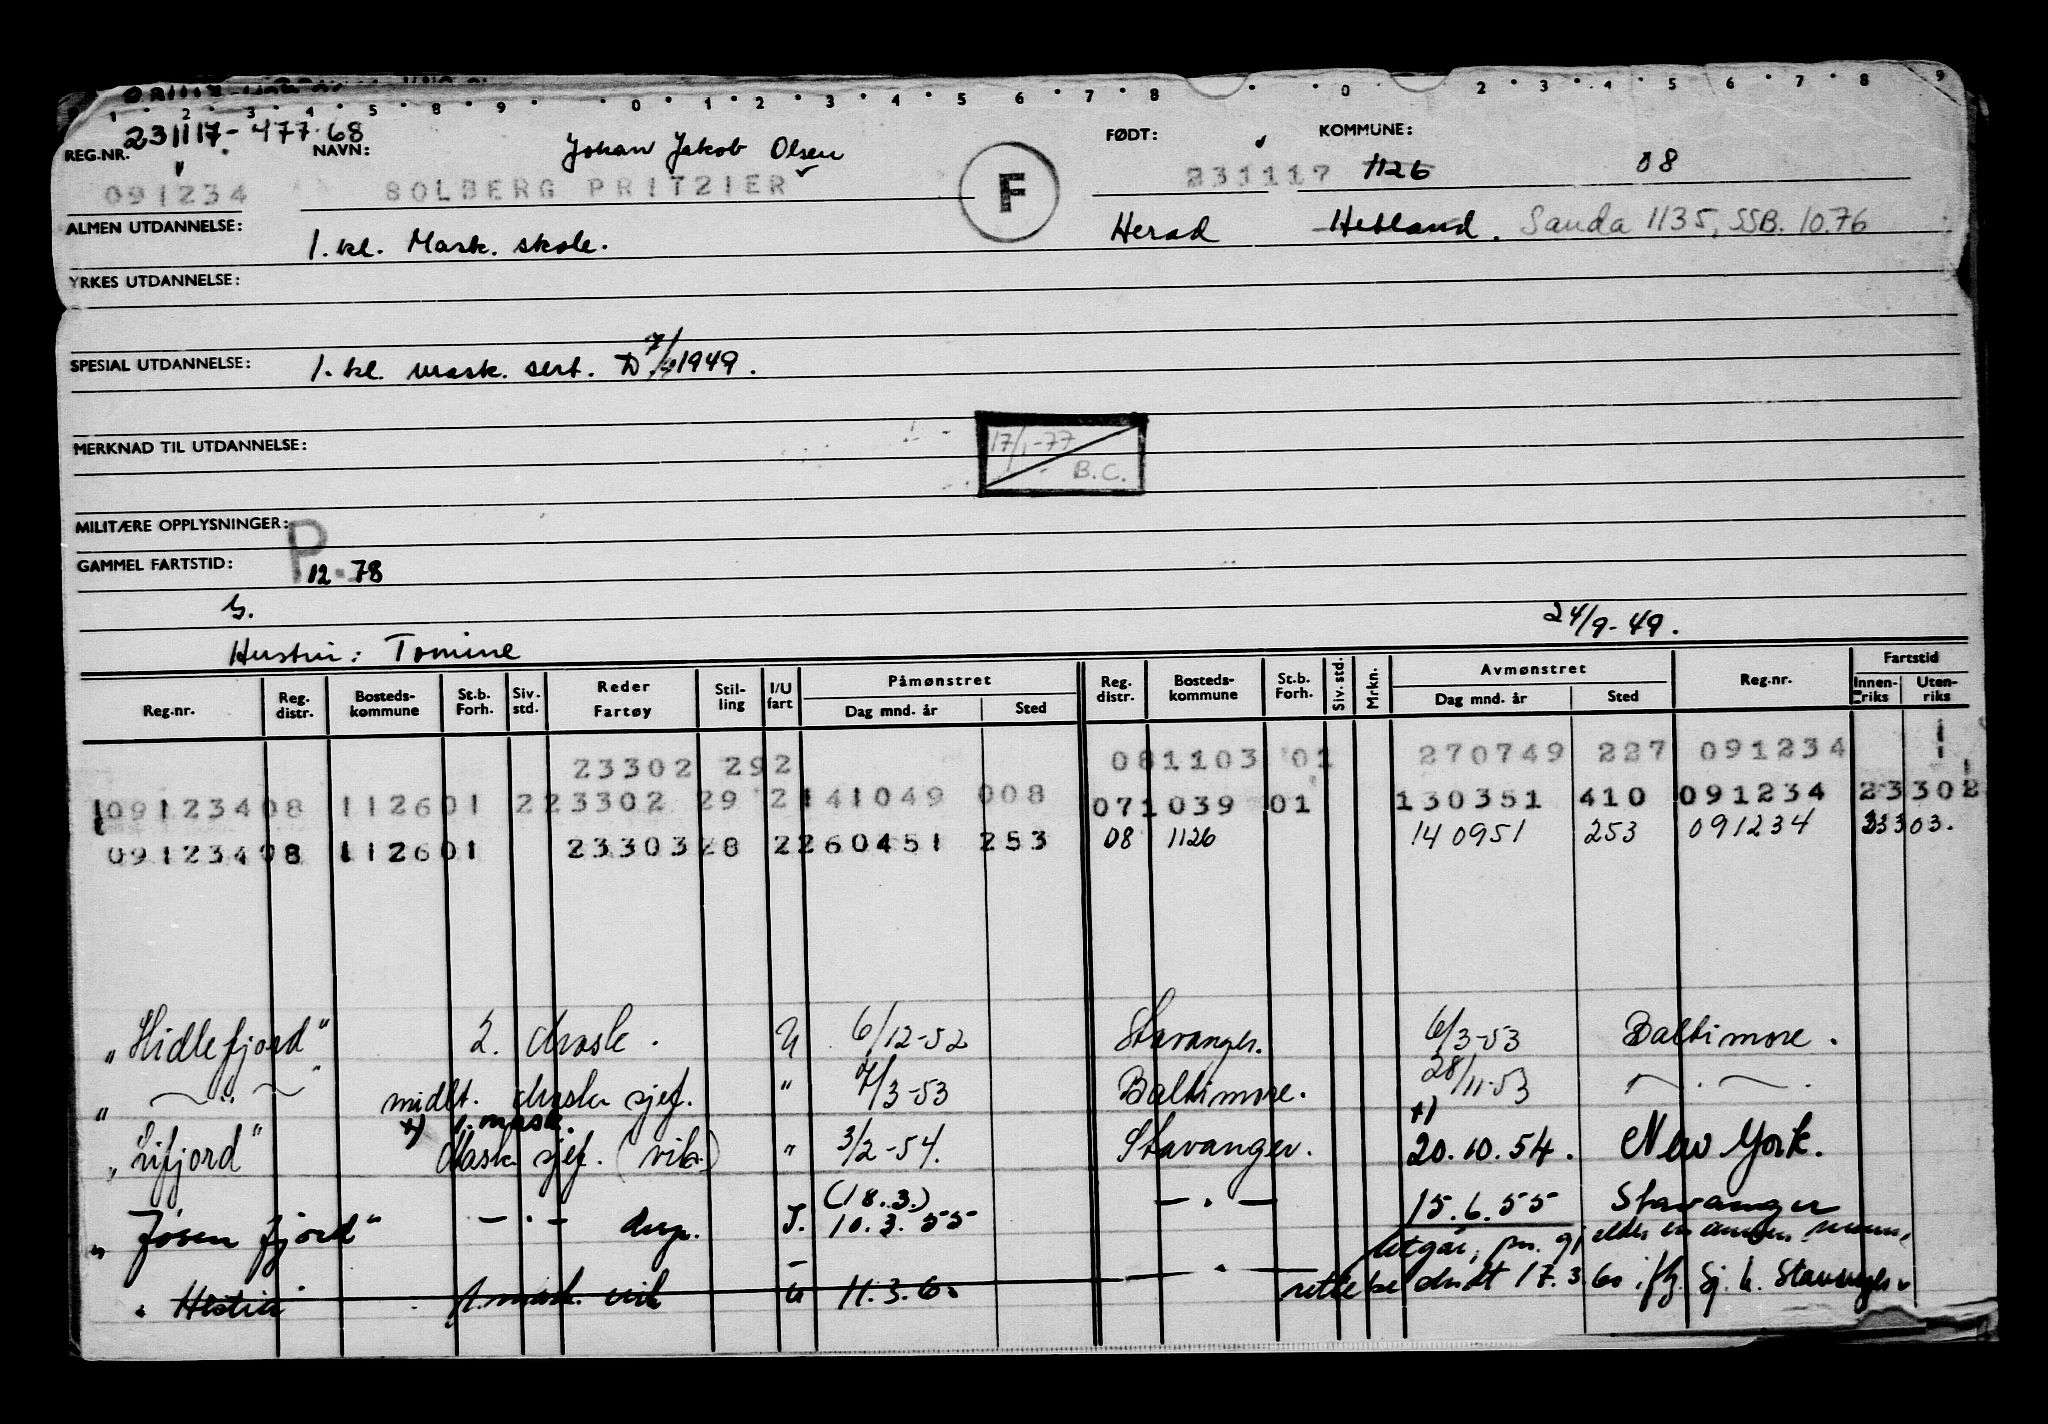 1 2 3 4 5 8 9 0 1 2 3 4 5 6 7 8 0 2 3 4 5 6 7 8 9
231117-47768
REG.NR. NAVN: Johan Jakob Olsen FØDT: KOMMUNE:
091234 SOLBERG PRITZIER F 231117 1126 08
ALMEN UTDANNELSE: 1. kl. Mask. skole. Herad Hetland. Sauda 1135, SSB. 10.76
YRKES UTDANNELSE:
SPESIAL UTDANNELSE: 1. kl. mask. sert. D 1949.
MERKNAD TIL UTDANNELSE: 17/1-77 B.C.
MILITÆRE OPPLYSNINGER:
GAMMEL FARTSTID: P 12.78
G.
24/9-49.
Hustru: Tomine
Reg.nr. Reg. distr. Bosteds-kommune St.b. Forh. Siv. std. Reder Fartøy Stil-ling I/U fart Påmønstret Dag mnd. år Sted Reg. distr. Bosteds-kommune St.b. Forh. Siv. std. Mrkn. Avmønstret Dag mnd. år Sted Reg.nr. Fartstid Innen-riks Uten-riks
23302 29 2 08 1103 01 270749 227 091234
091234 08 1126 01 2 23302 29 2 141049 008 07 1039 01 130351 410 091234 23302
091234 08 1126 01 23303 28 2 260451 253 08 1126 140951 253 091234 33303.
"Hidlefjord" 2. Mask. U 6/12-52 Stavanger. 6/3-53 Baltimore.
" — " — " midlt. Mask sjef. " 7/3-53 Baltimore. 28/11-53 — . — .
x) 1. mask. x)
"Lifjord" Mask sjef. (vik.) " 3/2-54. Stavanger. 20.10.54. New York.
(18.3.)
"Jøsenfjord" — . — I. 10.3.55 — . — 15.6.55 Stavanger
Utgår,
" Hestia 1. mask. vik U 11.3.60 — . — 17.3.60 Stavanger